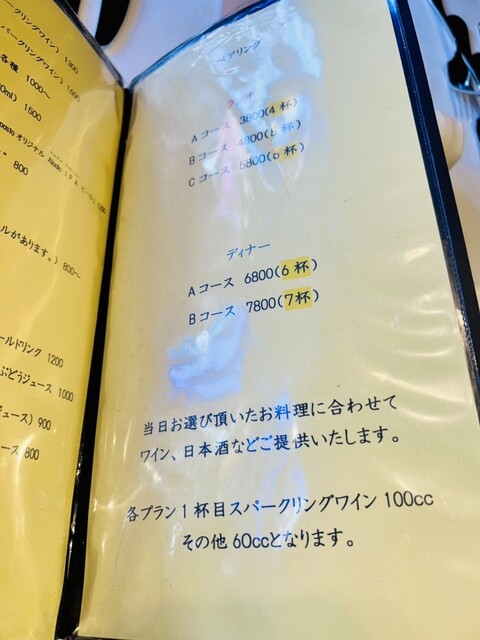 パークリングワイン) 1300
パークリングワイン) 1600
各種 1000〜
0ml) 1500
800
ルがあります。) 800〜
ールドリンク 1200
ぶどうジュース 1000
ジュース) 900
ース 800
ペアリング
ランチ
Aコース 3800(4杯)
Bコース 4800(5杯)
Cコース 5800(6杯)
ディナー
Aコース 6800(6杯)
Bコース 7800(7杯)
当日お選び頂いたお料理に合わせて
ワイン、日本酒などご提供いたします。
各プラン1杯目スパークリングワイン100cc
その他60ccとなります。